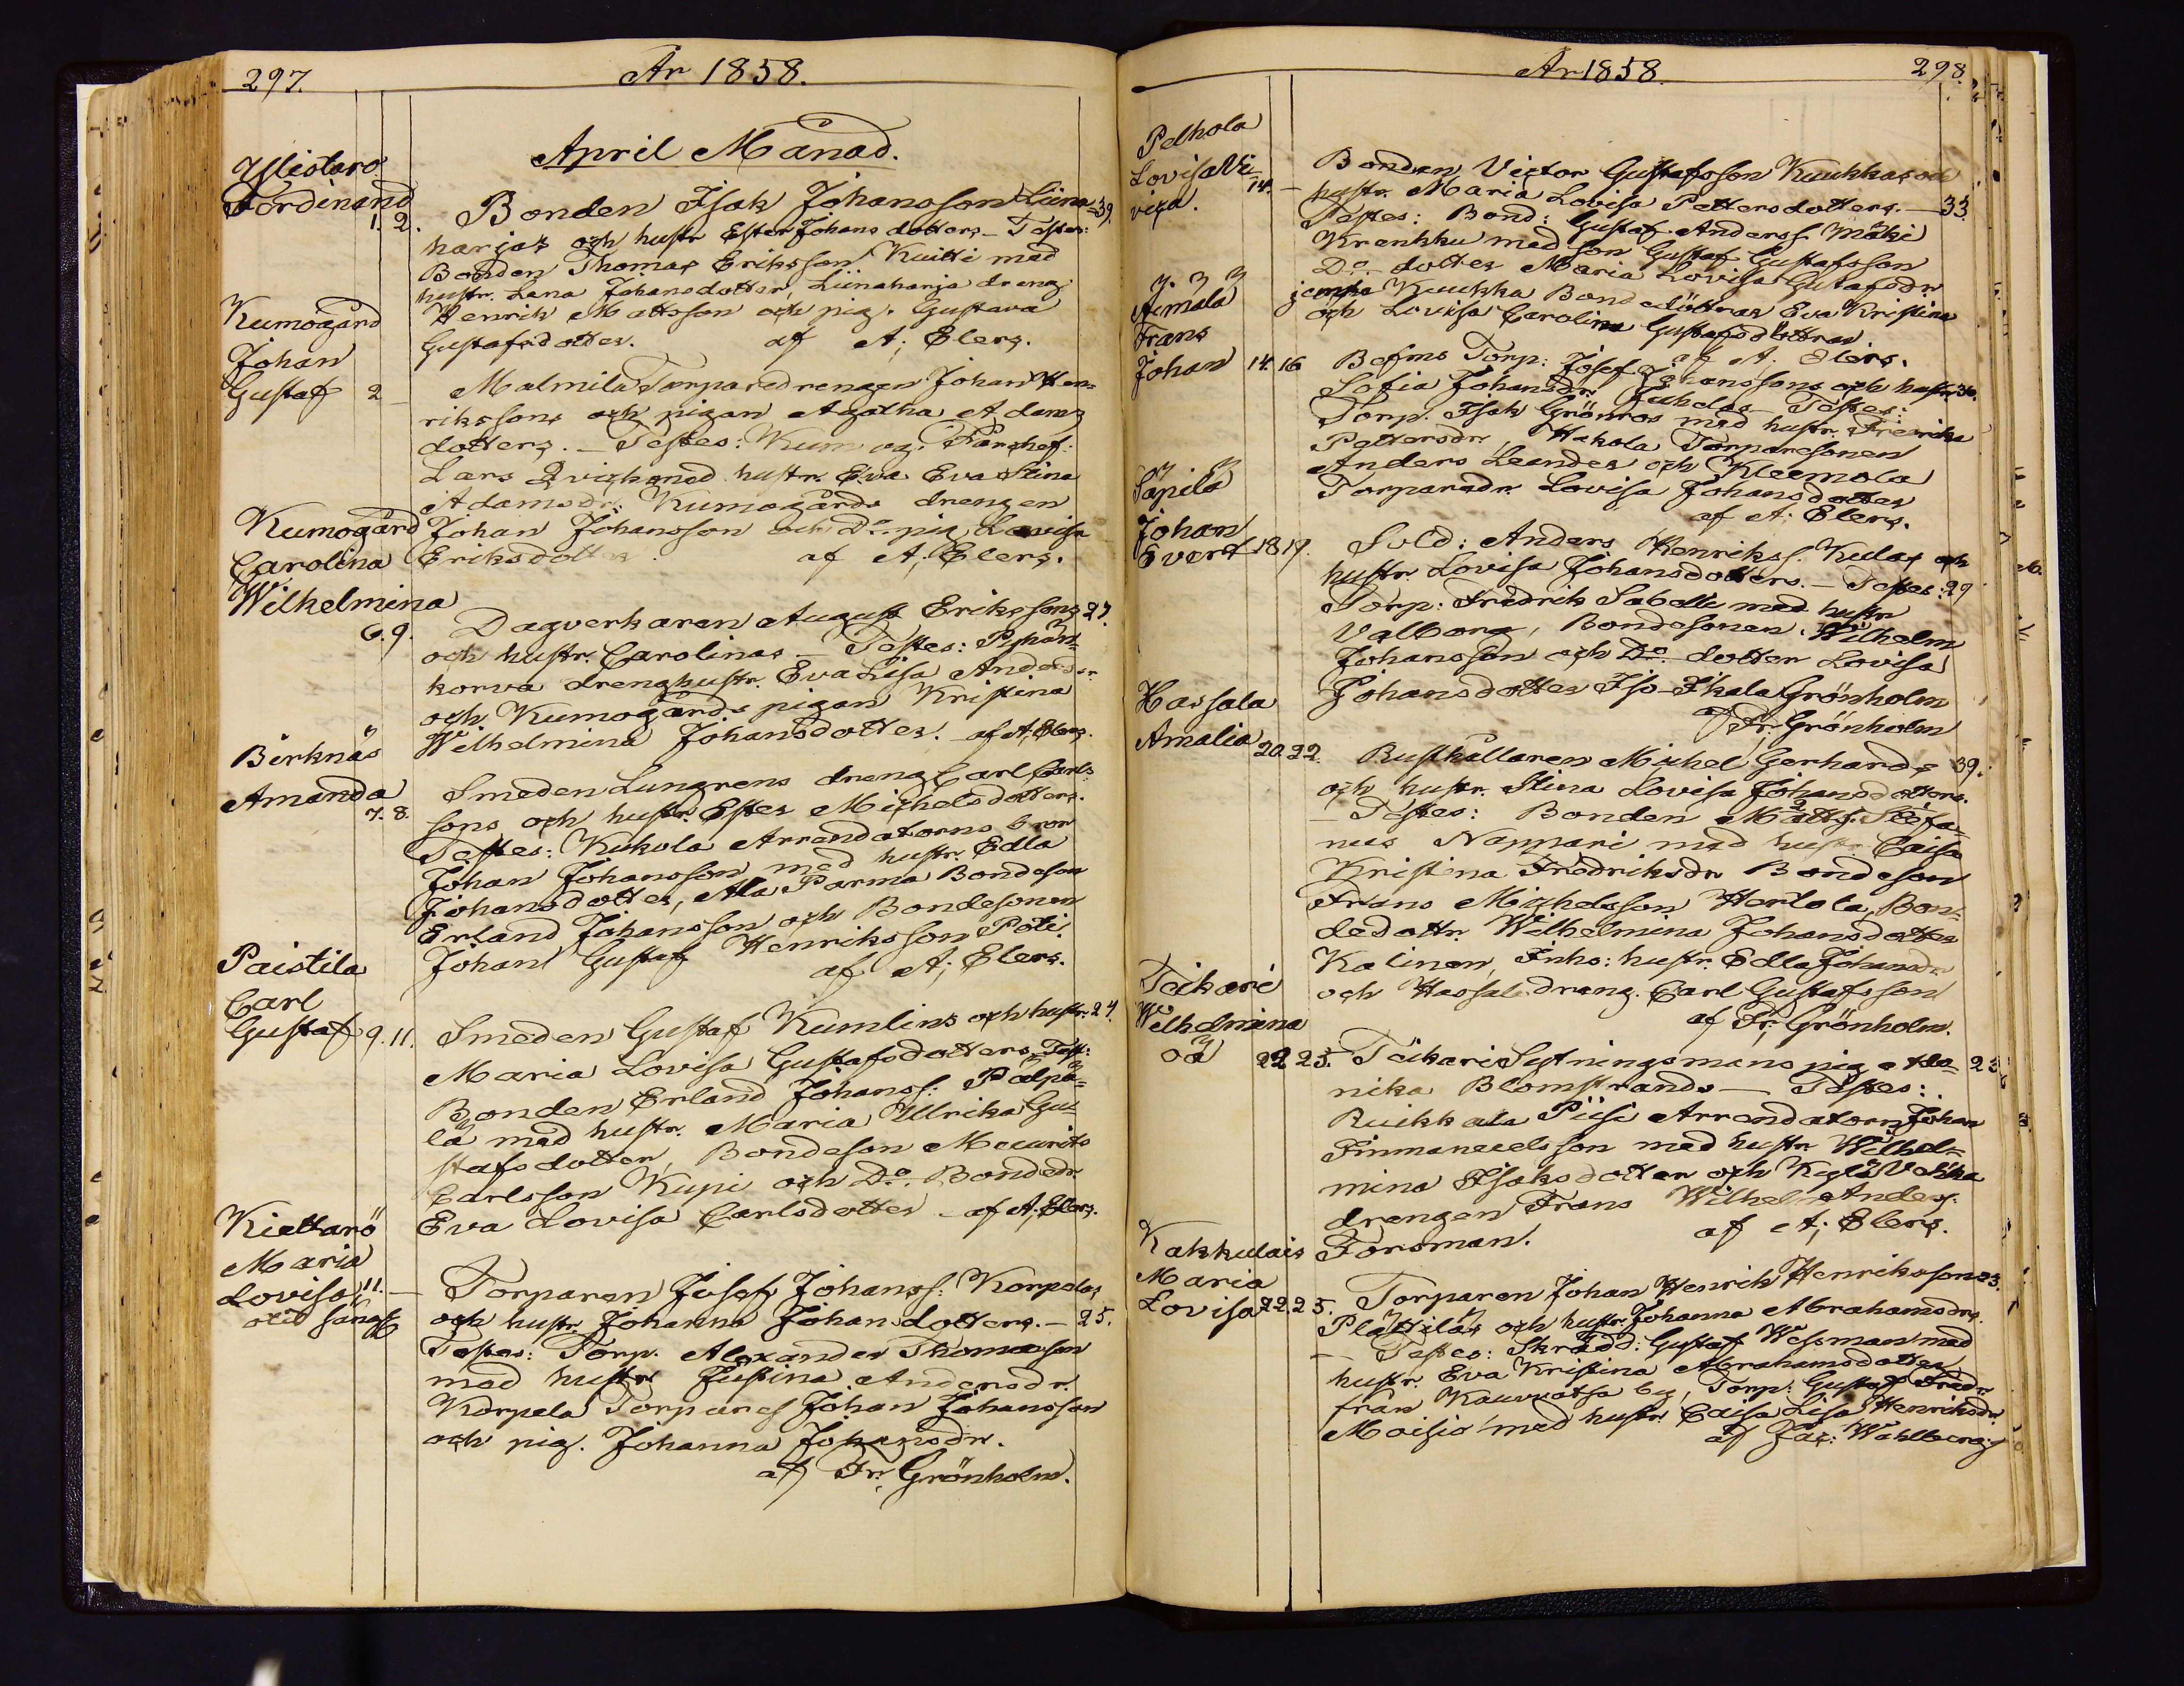 297.
År 1858.
April Månad.
Yllistaro
Ferdinand
1. 2.
Bonden Isak Johansson Liina- 39.
harjas och hustr Ester Johansdotters - Testes:
Bonden Thomas Eriksson Kuitti med
hustr. Lena Johansdotter, Liinaharja dreng
Henrik Mattsson och pig. Gustava
Gustafsdotter. af A; Elers.
Kumogård
Johan
Gustaf 2 -
Malmila Torparedrengen Johan Hen-
rikssons och pigan Agatha Adams
dotters. - Testes: Kumog.
Lars Qvick med hustr. Eva Eva Stina
Adamsdr. Kumogårds drengen
Johan Johansson och Do. pig. Lovisa
Eriksdotter. af A; Elers.
Kumogård
Carolina
Wilhelmina
6. 9.
Dagverkaren August Erikssons 27.
och hustr. Carolinas - Testes:
korva drenghustr. Eva Lisa Anders
och Kumogårds pigan Kristina
Wilhelmina Johansdotter. af A; Elers.
Birknäs
Amanda
7. 8.
Smeden Lungrens dreng Carl Carls-
sons och hustr. Ester Michelsdotters.
Testes: Kukola Arrendatorns bror
Johan Johansson med hustr. Edla
Johansdotter, Ala Parma Bondeson
Erland Johansson och Bondesonen
Johan Gustaf Henriksson Poti.
af A; Elers.
Paistila
Carl
Gustaf 9. 11.
Smeden Gustaf Kumlins och hustr. 24.
Maria Lovisa Gustafsdotters Test:
Bonden Erland Johanss: Pälpä-
lä med hustr. Maria Ulrika Gu-
stafsdotter, Bondeson Maurits
Carlsson Kupi och Do. Bondedr.
Eva Lovisa Carlsdotter - af A; Elers.
Kiettarö
Maria
Lovisa 11. -
Torparen Josef Johanss: Korpelas
och hustr. Johanna Johansdotters. - 25.
Testes: Torp. Alexander Thomasson
med hustr. Justina Andersdr.
Korpela Torpares Johan Johansson
och pig. Johanna Johansdr.
af Fr; Grönholm.
År 1858.
298.
Pelhola
Lovisa Vi-
viga. 14. -
Bonden Victor Gustafsson Kuukkas och
hustr. Maria Lovisa Pettersdotters. - 33.
Testes: Bond: Gustaf Anderss. Mäki
Krenkku med son Gustaf Gustafsson
Do. dotter Maria Lovisa Gustafsdr
jemte Kuukka Bondedöttrar Eva Kristina
och Lovisa Carolina Gustafsdöttrar.
af A. Elers.
Ämälä
Frans
Johan 14. 16
Befms Torp: Josef Johanssons och hustr. 30.
Sofia Johansdr. Testes:
Torp. Isak Grönros med hustr. Fredrika
Pettersdr, Hakola Torparesonen
Anders Leander och Kleemola
Torparedr. Lovisa Johansdotter
af A; Elers.
Säpilä
Johan
Evert 18 19.
Sold: Anders Henrikss. Kulas och
hustr. Lovisa Johansdotters. - Testes: 29
Torp: Fredrik Sabelli med hustr
Valborg, Bondesonen Wilhelm
Johansson och Do. dotter Lovisa
Johansdotter Iso-Ikala Grönholm
af Fr; Grönholm
Hassala
Amalia 20. 22.
Rusthållaren Michel Gerhards 39.
och hustr. Stina Lovisa Johansdotters.
- Testes: Bonden Matts: Stefa-
nus Nappari med hustr Caisa
Kristina Fredriksdr Bondeson
Frans Michelsson Hertola, Bon-
dedottr. Wilhelmina Johansdotter
Kalinen, Inhs: hustr. Edla Johansdr
och Hassala dreng. Carl Gustafsson
af Fr; Grönholm.
Teikari
Wilhelmina
oä 22 25.
Teikari Sytningsmans pig. 23
nika Blomstrands - Testes:
Ruikkala Piisi Arrendatorn Johan
Immanuelsson med hustr. Wilhel-
mina Isaksdotter och Kylä Vähka
drengen Frans Wilhelm Anders:
Forsman. af A; Elers.
Kakkulais
Maria
Lovisa 22. 25.
Torparen Johan Henrik Henrikssons 23.
Plättiläs och hustr. Johanna Abrahamsdrs.
- Testes: Skrädd: Gustaf Wesman med
hustr. Eva Kristina Abrahamsdotter
från Kauvatsa by, Torp: Gustaf Fredr
Moisio med hustr. Caisa Lisa Henriksdr.
af Jac: Wahlberg